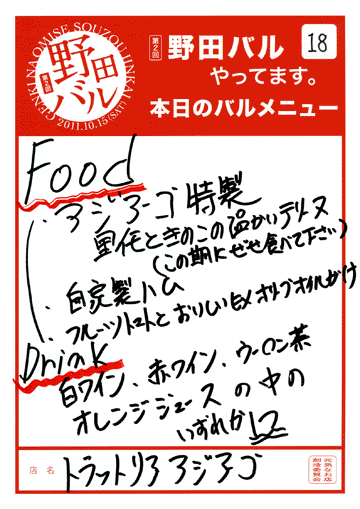 GENKI NA OMISE SOUZOU IINKAI
第2回
野田
バル
2011.10.15(SAT)
第2回 野田バル
やってます。
18
本日のバルメニュー
Food
・アジアーゴ特製
里芋ときのこの温かいテリーヌ
(この期にぜひ食べて下さい)
・自家製ハム
・フルーツトマトとおいしいEXオリーブオイルがけ
Drink
白ワイン、赤ワイン、ウーロン茶
オレンジジュースの中の
いずれか1つ
店名
トラットリア アジアゴ
元気なお店
創造委員会